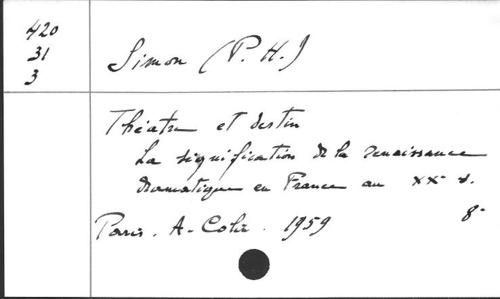 420
31
3
Simon (P. H.)
Théatre et destin
La signification de la renaissance
dramatique en France au XXe s.
Paris. A. Colin. 1959
8°